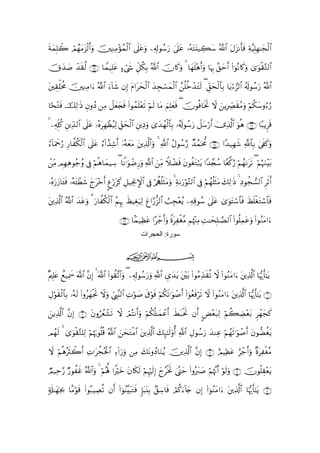 ٱلْجَٰهِلِيَّةِ فَأَنزَلَ ٱللَّهُ سَكِينَتَهُۥ عَلَىٰ رَسُولِهِۦ وَعَلَى ٱلْمُؤْمِنِينَ وَأَلْزَمَهُمْ كَلِمَةَ
ٱلتَّقْوَىٰ وَكَانُوٓا۟ أَحَقَّ بِهَا وَأَهْلَهَا ۚ وَكَانَ ٱللَّهُ بِكُلِّ شَىْءٍ عَلِيمًا ﴿٢٦﴾ لَّقَدْ صَدَقَ
ٱللَّهُ رَسُولَهُ ٱلرُّءْيَا بِٱلْحَقِّ ۖ لَتَدْخُلُنَّ ٱلْمَسْجِدَ ٱلْحَرَامَ إِن شَآءَ ٱللَّهُ ءَامِنِينَ مُحَلِّقِينَ
رُءُوسَكُمْ وَمُقَصِّرِينَ لَا تَخَافُونَ ۖ فَعَلِمَ مَا لَمْ تَعْلَمُوا۟ فَجَعَلَ مِن دُونِ ذَٰلِكَ فَتْحًا
قَرِيبًا ﴿٢٧﴾ هُوَ ٱلَّذِىٓ أَرْسَلَ رَسُولَهُۥ بِٱلْهُدَىٰ وَدِينِ ٱلْحَقِّ لِيُظْهِرَهُۥ عَلَى ٱلدِّينِ كُلِّهِۦ ۚ
وَكَفَىٰ بِٱللَّهِ شَهِيدًا ﴿٢٨﴾ مُّحَمَّدٌ رَّسُولُ ٱللَّهِ ۚ وَٱلَّذِينَ مَعَهُۥٓ أَشِدَّآءُ عَلَى ٱلْكُفَّارِ رُحَمَآءُ
بَيْنَهُمْ ۖ تَرَىٰهُمْ رُكَّعًا سُجَّدًا يَبْتَغُونَ فَضْلًا مِّنَ ٱللَّهِ وَرِضْوَٰنًا ۖ سِيمَاهُمْ فِى وُجُوهِهِم مِّنْ
أَثَرِ ٱلسُّجُودِ ۚ ذَٰلِكَ مَثَلُهُمْ فِى ٱلتَّوْرَىٰةِ ۚ وَمَثَلُهُمْ فِى ٱلْإِنجِيلِ كَزَرْعٍ أَخْرَجَ شَطْـَٔهُۥ فَـَٔازَرَهُۥ
فَٱسْتَغْلَظَ فَٱسْتَوَىٰ عَلَىٰ سُوقِهِۦ يُعْجِبُ ٱلزُّرَّاعَ لِيَغِيظَ بِهِمُ ٱلْكُفَّارَ ۗ وَعَدَ ٱللَّهُ ٱلَّذِينَ
ءَامَنُوا۟ وَعَمِلُوا۟ ٱلصَّٰلِحَٰتِ مِنْهُم مَّغْفِرَةً وَأَجْرًا عَظِيمًا ﴿٢٩﴾
سورة: الحجرات
بِسْمِ ٱللَّهِ ٱلرَّحْمَٰنِ ٱلرَّحِيمِ
يَٰٓأَيُّهَا ٱلَّذِينَ ءَامَنُوا۟ لَا تُقَدِّمُوا۟ بَيْنَ يَدَىِ ٱللَّهِ وَرَسُولِهِۦ ۖ وَٱتَّقُوا۟ ٱللَّهَ ۚ إِنَّ ٱللَّهَ سَمِيعٌ عَلِيمٌ
﴿١﴾ يَٰٓأَيُّهَا ٱلَّذِينَ ءَامَنُوا۟ لَا تَرْفَعُوٓا۟ أَصْوَٰتَكُمْ فَوْقَ صَوْتِ ٱلنَّبِىِّ وَلَا تَجْهَرُوا۟ لَهُۥ بِٱلْقَوْلِ
كَجَهْرِ بَعْضِكُمْ لِبَعْضٍ أَن تَحْبَطَ أَعْمَٰلُكُمْ وَأَنتُمْ لَا تَشْعُرُونَ ﴿٢﴾ إِنَّ ٱلَّذِينَ
يَغُضُّونَ أَصْوَٰتَهُمْ عِندَ رَسُولِ ٱللَّهِ أُو۟لَٰٓئِكَ ٱلَّذِينَ ٱمْتَحَنَ ٱللَّهُ قُلُوبَهُمْ لِلتَّقْوَىٰ ۚ لَهُم
مَّغْفِرَةٌ وَأَجْرٌ عَظِيمٌ ﴿٣﴾ إِنَّ ٱلَّذِينَ يُنَادُونَكَ مِن وَرَآءِ ٱلْحُجُرَٰتِ أَكْثَرُهُمْ لَا
يَعْقِلُونَ ﴿٤﴾ وَلَوْ أَنَّهُمْ صَبَرُوا۟ حَتَّىٰ تَخْرُجَ إِلَيْهِمْ لَكَانَ خَيْرًا لَّهُمْ ۚ وَٱللَّهُ غَفُورٌ رَّحِيمٌ
﴿٥﴾ يَٰٓأَيُّهَا ٱلَّذِينَ ءَامَنُوٓا۟ إِن جَآءَكُمْ فَاسِقٌۢ بِنَبَإٍ فَتَبَيَّنُوٓا۟ أَن تُصِيبُوا۟ قَوْمًۢا بِجَهَٰلَةٍ